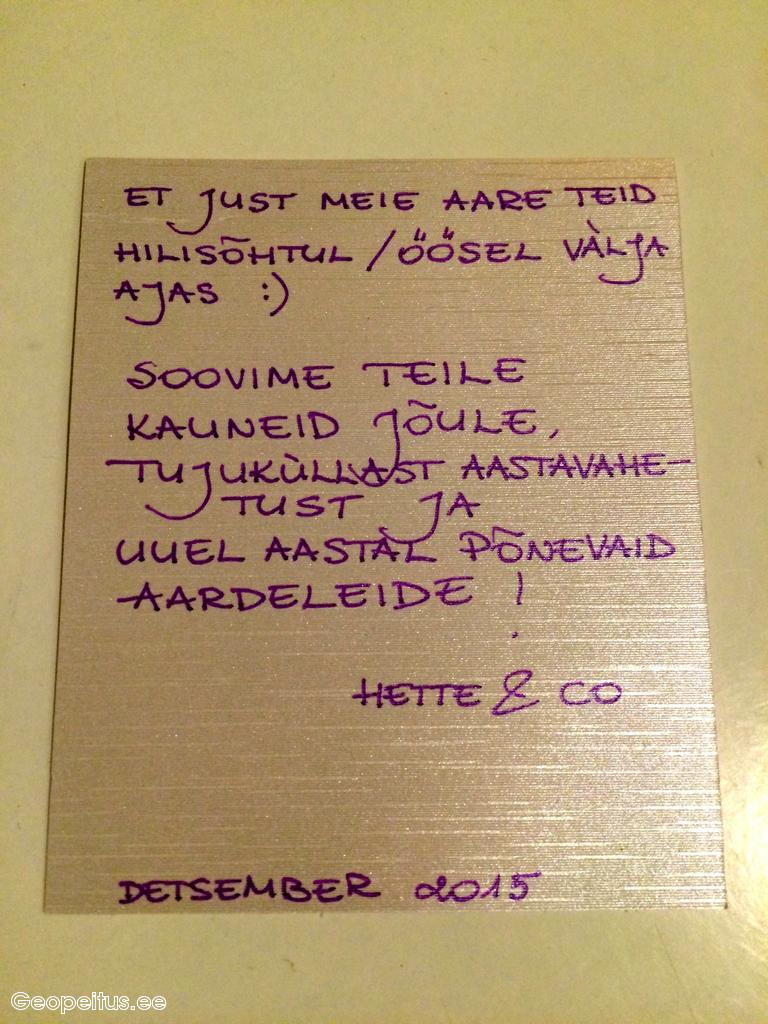 ET JUST MEIE AARE TEID
HILISÕHTUL / ÖÖSEL VÄLJA
AJAS :)
SOOVIME TEILE
KAUNEID JÕULE,
TUJUKÜLLAST AASTAVAHE-
TUST JA
UUEL AASTAL PÕNEVAID
AARDELEIDE !
HETTE & CO
DETSEMBER 2015
Geopeitus.ee